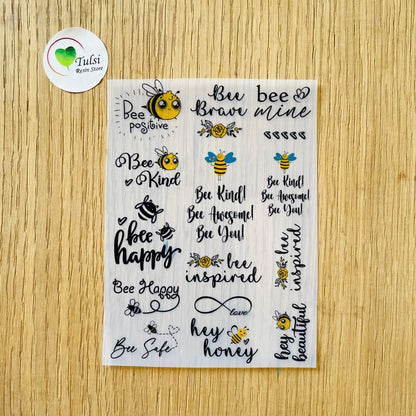 Tulsi
Resin Store
Bee
positive
Bee
Brave
bee
mine
Bee
Kind
Bee Kind!
Bee Awesome!
Bee You!
Bee Kind!
Bee Awesome!
Bee You!
bee
happy
bee
inspired
bee
inspired
Bee Happy
love
Bee Safe
hey
honey
hey
beautiful